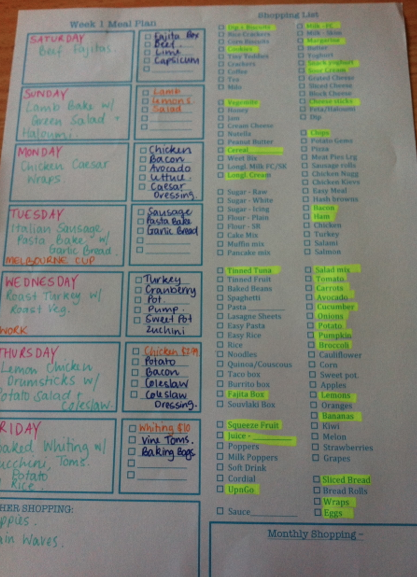 Week 1 Meal Plan
SATURDAY
Beef Fajitas.
Fajita Box
Beef
Lime
Capsicum
SUNDAY
Lamb Bake w/
Green Salad +
Haloumi.
Lamb
Lemons
Salad
MONDAY
Chicken Caesar
Wraps.
Chicken
Bacon
Avocado
Lettuce
Caesar
Dressing.
TUESDAY
Italian Sausage
Pasta Bake w/
Garlic Bread
MELBOURNE CUP
Sausage
Pasta Bake
Garlic Bread
WEDNESDAY
Roast Turkey w/
Roast Veg.
WORK
Turkey
Cranberry
Pot.
Pump.
Sweet Pot
Zuchini
THURSDAY
Lemon Chicken
Drumsticks w/
Potato Salad +
Coleslaw
Chicken
Potato
Bacon
Coleslaw
Coleslaw
Dressing.
RIDAY
aked Whiting w/
uccheini, Toms.
Potato
Rice.
Whiting $10
Vine Toms.
Baking Bags
HER SHOPPING:
ppus.
ain Waves.
Shopping List
Rice Crackers
Corn Biscuits
Cookies
Tiny Teddies
Crackers
Coffee
Tea
Milo
Vegemite
Honey
Jam
Cream Cheese
Nutella
Peanut Butter
Cereal
Weet Bix
Longl. Milk FC/SK
Longl. Cream
Sugar - Raw
Sugar - White
Sugar - Icing
Flour - Plain
Flour - SR
Cake Mix
Muffin mix
Pancake mix
Tinned Tuna
Tinned Fruit
Baked Beans
Spaghetti
Pasta
Lasagne Sheets
Easy Pasta
Easy Rice
Rice
Noodles
Quinoa/Couscous
Taco box
Burrito box
Fajita Box
Souvlaki Box
Squeeze Fruit
Juice -
Poppers
Milk Poppers
Soft Drink
Cordial
UpnGo
Sauce
Milk - FC
Milk - Skim
Margarine
Butter
Yoghurt
Snack yoghurt
Sour Cream
Grated Cheese
Sliced Cheese
Block Cheese
Cheese sticks
Feta/Haloumi
Dip
Chops
Potato Gems
Pizza
Meat Pies Lrg
Sausage rolls
Chicken Nugg
Chicken Kievs
Easy Meal
Hash browns
Bacon
Ham
Chicken
Turkey
Salami
Salmon
Salad mix
Tomato
Carrots
Avocado
Cucumber
Onions
Potato
Pumpkin
Broccoli
Cauliflower
Corn
Sweet pot.
Apples
Lemons
Oranges
Bananas
Kiwi
Melon
Strawberries
Grapes
Sliced Bread
Bread Rolls
Wraps
Eggs
Monthly Shopping -